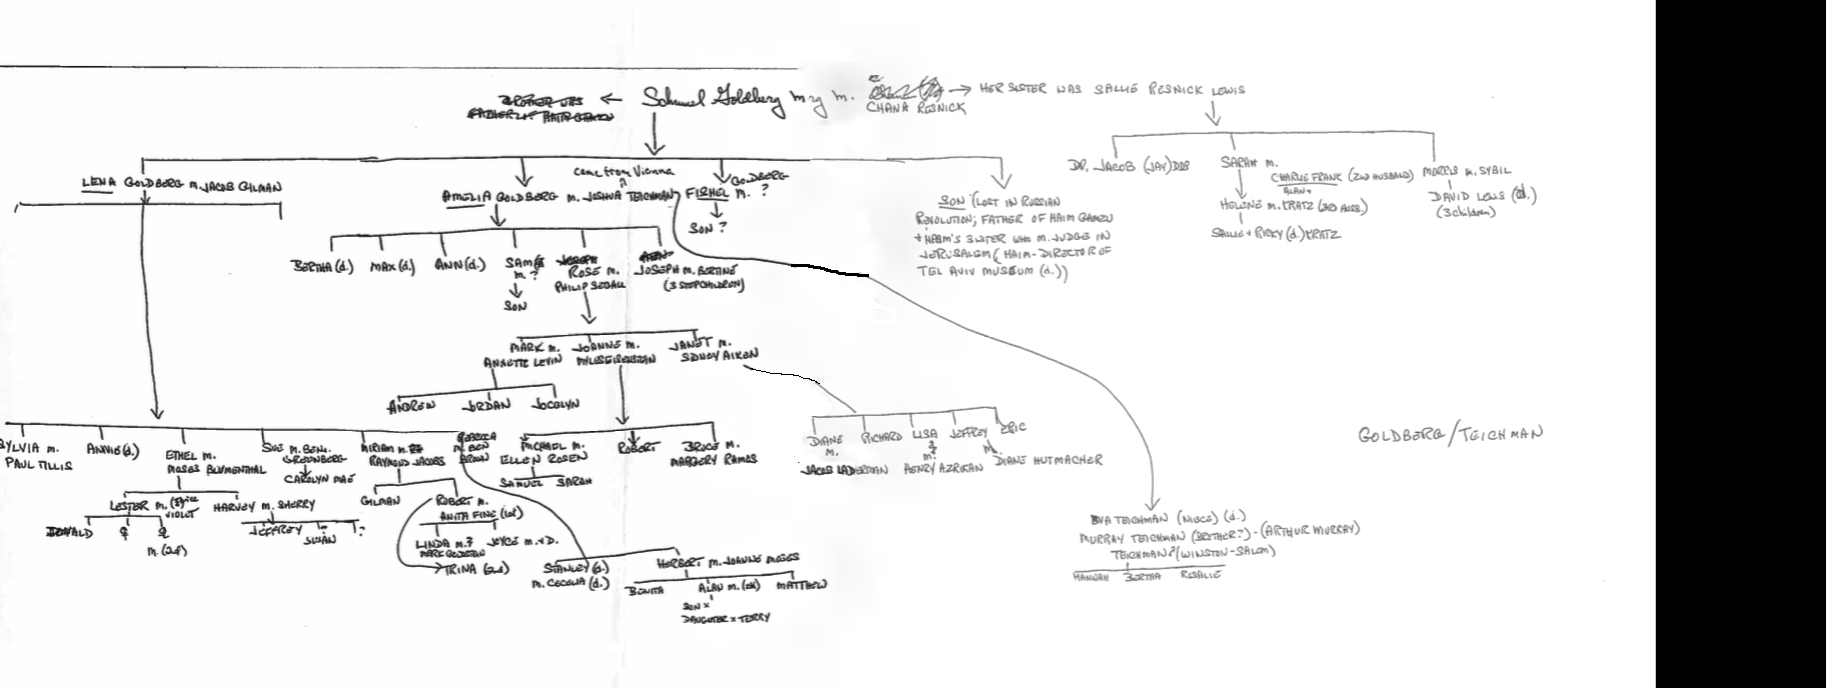 Schmuel Goldberg m. → HER SISTER WAS SALLIE RESNICK LEWIS
CHANA RESNICK
DR. JACOB (JAY) DDS
SARAH m.
CHARLIE FRANK (2ND HUSBAND)
ALAN +
HELENE m. KRATZ
SALLIE + RICKY (d.) KRATZ
MORRIS m. SYBIL
DAVID LEWIS (d.)
(3 children)
LENA GOLDBERG m. JACOB GILMAN
came from Vienna
AMELIA GOLDBERG m. JOSHUA TEICHMAN
GOLDBERG
FISHEL m. ?
SON ?
SON (LOST IN RUSSIAN
REVOLUTION; FATHER OF HAIM GAMZU
+ HAIM'S SISTER WHO m. JUDGE IN
JERUSALEM (HAIM - DIRECTOR OF
TEL AVIV MUSEUM (d.))
BERTHA (d.)
MAX (d.)
ANN (d.)
SAM
m. ?
SON
ROSE m.
PHILIP SEGALL
JOSEPH m. BERTINE
(3 STEPCHILDREN)
MARK m.
ANNETTE LEVIN
JOANNE m.
JANET m.
SIDNEY AIKEN
ANDREW
JORDAN
JOCELYN
SYLVIA m.
PAUL TILLIS
ANNIE (d.)
ETHEL m.
MOSES BLUMENTHAL
SUE m. BENJ.
GREENBERG
CAROLYN MAE
MIRIAM m.
RAYMOND JACOBS
REBECCA
m. BEN
BROWN
MICHAEL m.
ELLEN ROSEN
SAMUEL SARAH
ROBERT
BRUCE m.
MARGERY RAMOS
DIANE
m.
JACOB LADERMAN
RICHARD
LISA
m.
HENRY AZRIKAN
JEFFREY
m.
DIANE HUTMACHER
ERIC
GOLDBERG/TEICHMAN
LESTER m.
VIOLET
HARVEY m. SHERRY
DONALD
♀
♀
m. (2d)
JEFFREY
SUSAN
?
GILMAN
ROBERT m.
ANITA FINE (1st)
LINDA m.
JOYCE m. + D.
TRINA (2nd)
STANLEY (d.)
m. CECELIA (d.)
HERBERT m. JOANNE MOSES
BONITA
ALAN m.
MATTHEW
SON x
DAUGHTER x TERRY
EVA TEICHMAN (NIECE) (d.)
MURRAY TEICHMAN (BROTHER?) - (ARTHUR MURRAY)
TEICHMAN? (WINSTON-SALEM)
HANNAH BERTHA ROSALIE